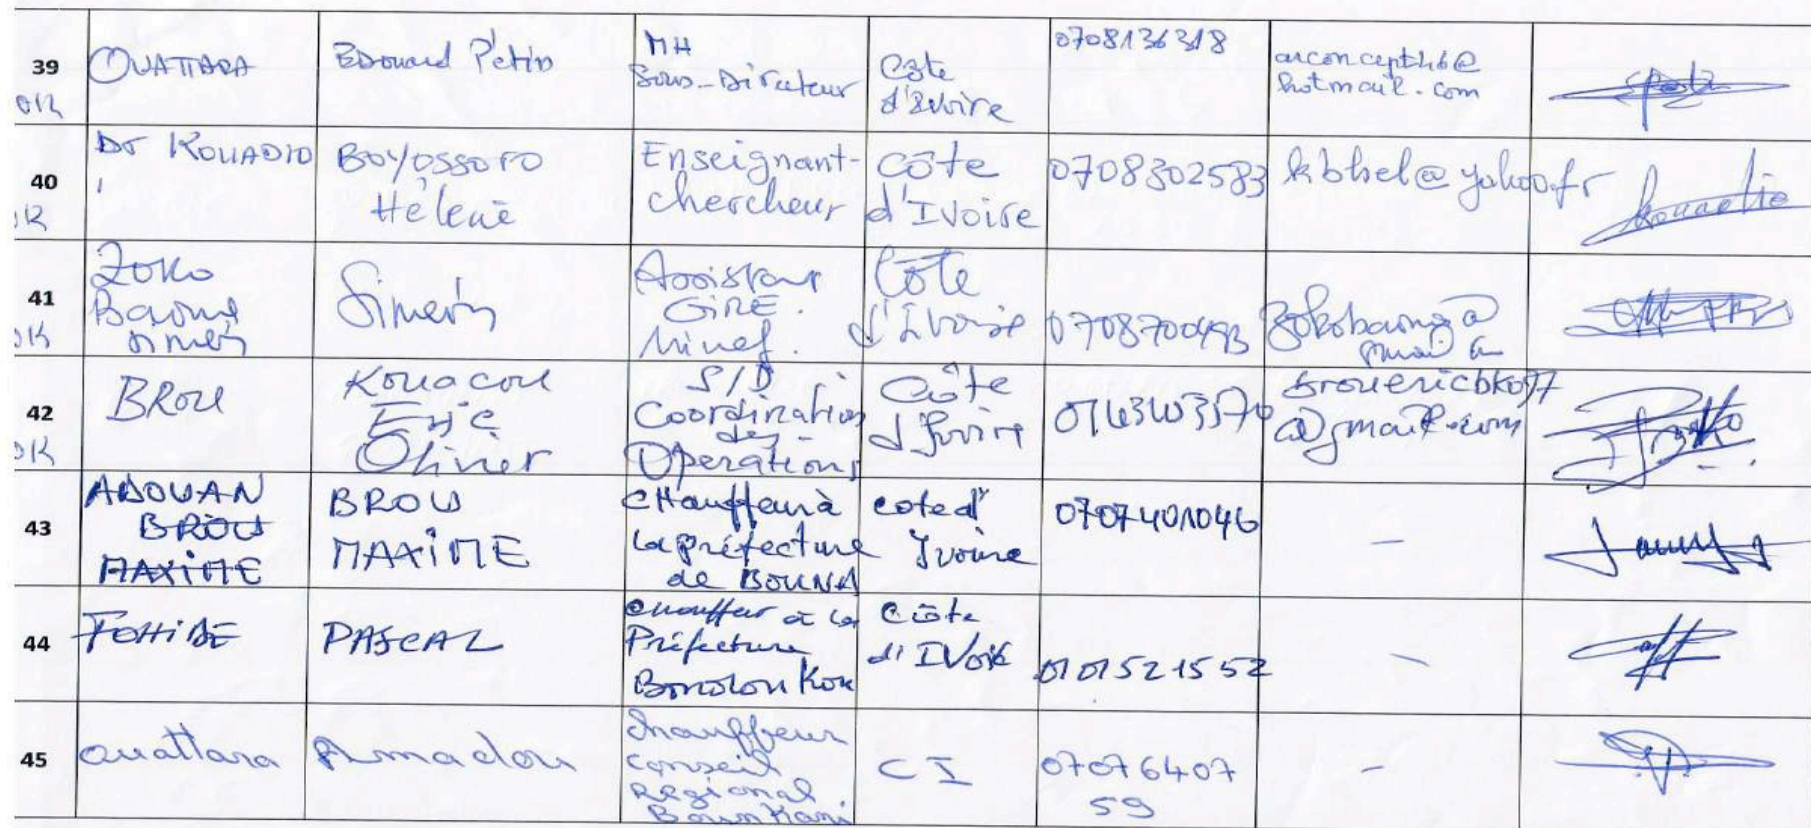 39 OUATTARA Edouard Pétin MH Sous-Directeur Côte d'Ivoire 0708136318 arconcepthb@hotmail.com
OK
40 Dr KOUADIO BOYOSSORO Hélène Enseignant-chercheur Côte d'Ivoire 0708302583 kbhel@yahoo.fr
OK
41 Zoko Siméon Assistant GIRE. Minef. Côte d'Ivoire 0708700493
OK
42 BROU Kouacou Eric Olivier S/D Coordination des Opérations Côte d'Ivoire brouericbko77@gmail.com
OK
43 ADOUAN BROU MAXIME BROU MAXIME Chauffeur à la préfecture de BOUNA cote d'Ivoire 0707401046 -
44 PASCAL Chauffeur à la Préfecture Côte d'Ivoire 0101521552 -
45 Ouattara Amadou Chauffeur conseil Régional Bounkani CI 0707640759 -